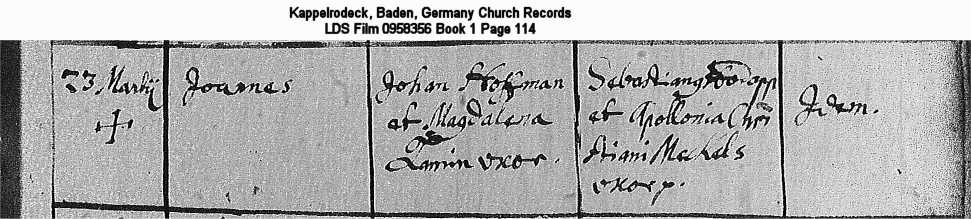 Kappelrodeck, Baden, Germany Church Records
LDS Film 0958356 Book 1 Page 114
23 Martij
Joannes
Johan Hoffman
et Magdalena
uxor.
Sebastianus
et Apollonia Chri
stiani Meckels
uxor.
Idem.